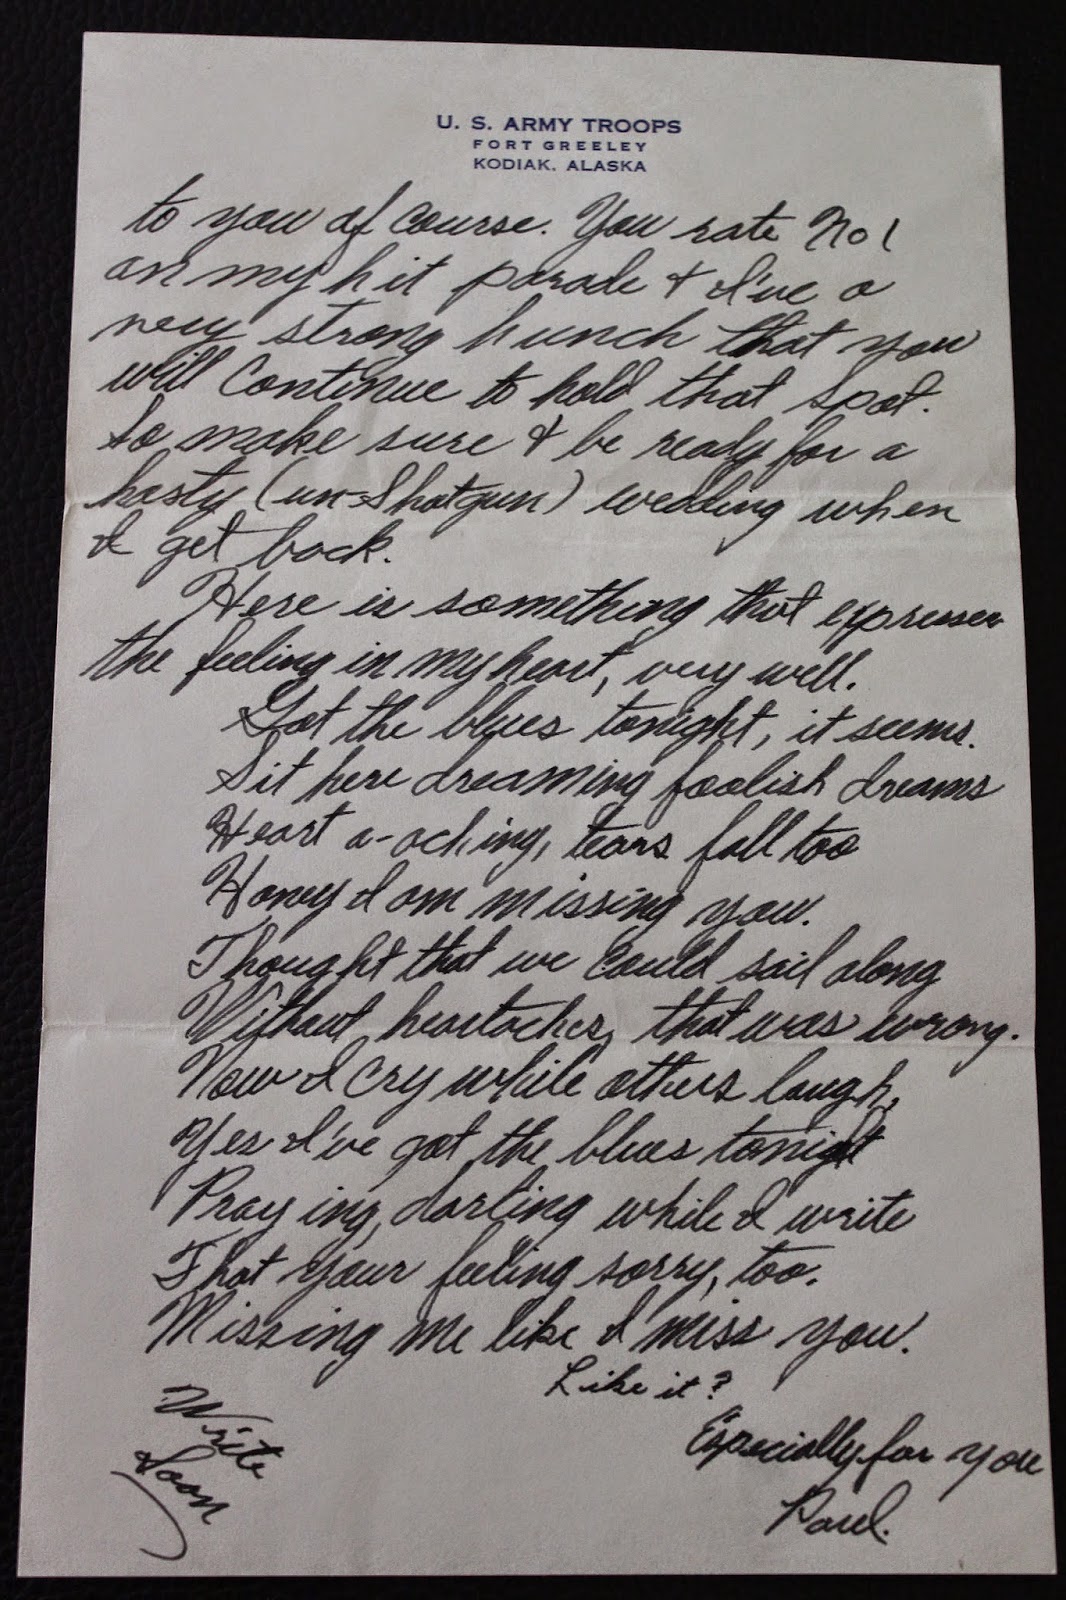 U. S. ARMY TROOPS
FORT GREELEY
KODIAK, ALASKA
to you of course. You rate No 1
on my hit parade & I've a
very strong hunch that you
will continue to hold that spot.
So make sure & be ready for a
hasty (un-Shotgun) wedding when
I get back.
Here is something that expresses
the feeling in my heart, very well.
Got the blues tonight, it seems.
Sit here dreaming foolish dreams
Heart a-aching, tears fall too
Honey I am missing you.
Thought that we could sail along
Without heartaches, that was wrong.
Now I cry while others laugh,
Yes I've got the blues tonight
Praying, darling while I write
That your feeling sorry, too.
Missing me like I miss you.
Like it?
Write
Soon
Especially for you
Paul.